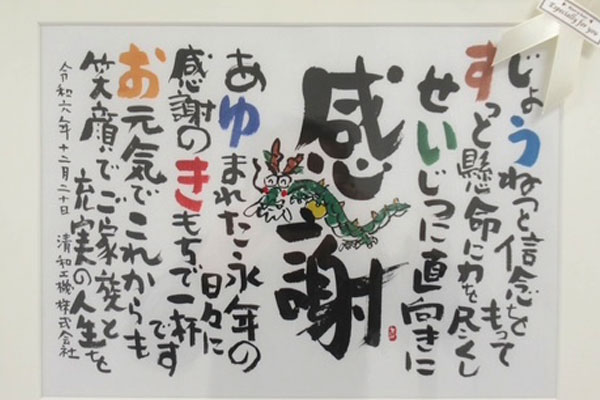 じょうねつと信念をもって
すっと懸命に力を尽くし
せいじつに直向きに
感謝
あゆまれた永年の日々に
感謝のきもちで一杯です
お元気でこれからも
笑顔でご家族と充実の人生を
令和六年十二月二十日 清和工機株式会社
Especially for you